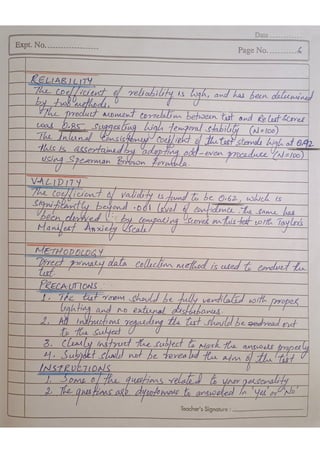 Date
Expt. No.
Page No. 6
RELIABILITY
The coefficient of reliability is high, and has been determined
by two methods.
The product moment correlation between test and Retest scores
was 0.85 suggesting high temporal stability (N=100)
The Internal Consistency coefficient of the test stands high at 0.92
This is ascertained by adopting odd-even procedure (N=100)
using Spearman Brown formula.
VALIDITY
The coefficient of validity is found to be 0.62, which is
significantly beyond .001 level of confidence. The same has
been derived by comparing scores on this test with Taylor's
Manifest Anxiety Scale.
METHODOLOGY
Direct primary data collection method is used to conduct the
test.
PRECAUTIONS
1. The test room should be fully ventilated with proper
lighting and no external disturbances.
2. All instructions regarding the test should be read out
to the subject
3. Clearly instruct the subject to mark the answers properly
4. Subject shall not be revealed the aim of the test
INSTRUCTIONS
1. Some of the questions related to your personality
2. The questions are dycotomous to answered in 'Yes' or 'No'
Teacher's Signature :